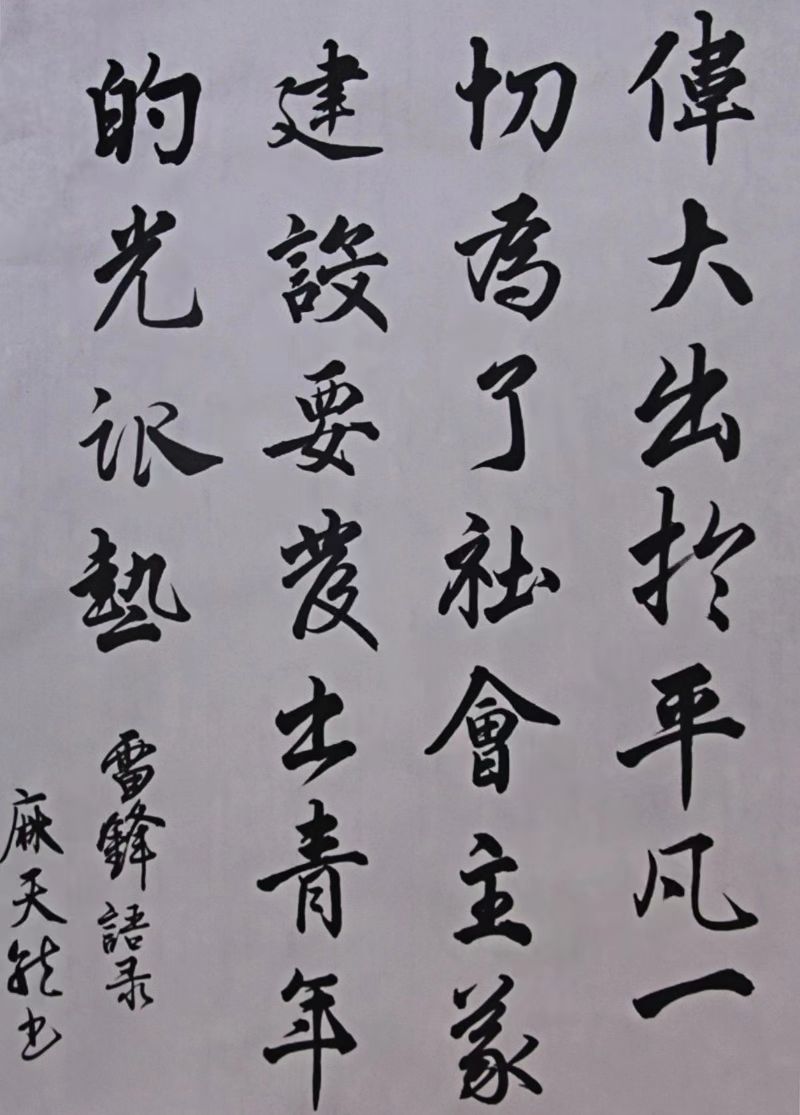 偉大出於平凡一
切為了社會主義
建設要發出青年
的光熱
雷鋒語录
麻天书